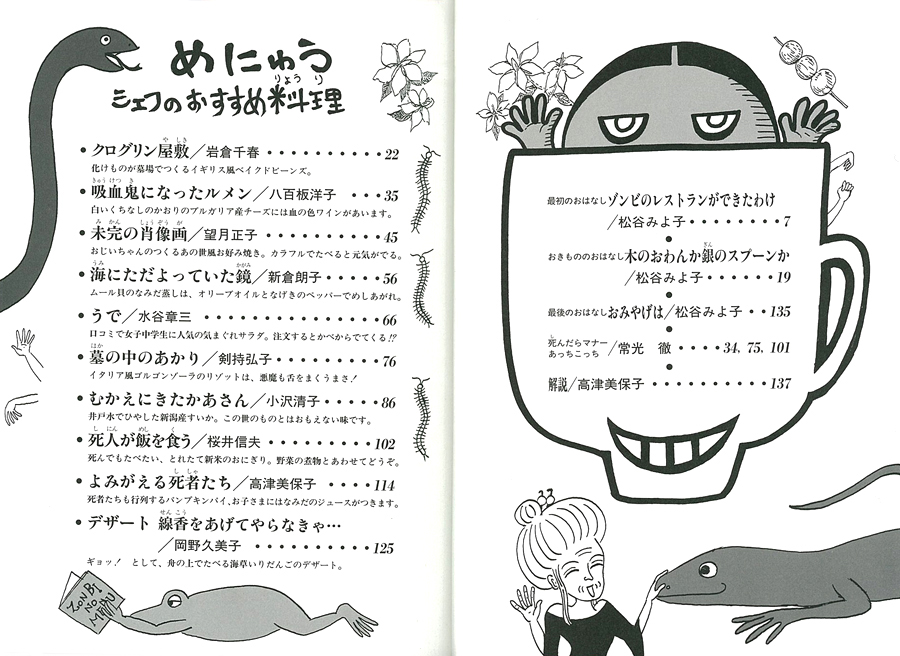 めにゅう
シェフのおすすめ料理
りょうり
•クログリン屋敷／岩倉千春 ・・・・・・・・・・・22
化けものが墓場でつくるイギリス風ベイクドビーンズ。
•吸血鬼になったルメン／八百板洋子 ・・・35
白いくちなしのかおりのブルガリア産チーズには血の色ワインがあいます。
•未完の肖像画／望月正子 ・・・・・・・・・・・45
おじいちゃんのつくるあの世風お好み焼き。カラフルでたべると元気がでる。
•海にただよっていた鏡／新倉朗子 ・・・・56
ムール貝のなみだ蒸しは、オリーブオイルとなげきのペッパーでめしあがれ。
•うで／水谷章三 ・・・・・・・・・・・・・・・・・66
口コミで女子中学生に人気の気まぐれサラダ。注文するとかべからでてくる!?
•墓の中のあかり／剣持弘子 ・・・・・・・・・76
イタリア風ゴルゴンゾーラのリゾットは、悪魔も舌をまくうまさ！
•むかえにきたかあさん／小沢清子 ・・・・・86
井戸水でひやした新潟産すいか。この世のものとはおもえない味です。
•死人が飯を食う／桜井信夫 ・・・・・・・・・102
死んでもたべたい、とれたて新米のおにぎり。野菜の煮物とあわせてどうぞ。
•よみがえる死者たち／高津美保子 ・・・・114
死者たちも行列するパンプキンパイ、お子さまにはなみだのジュースがつきます。
•デザート 線香をあげてやらなきゃ…
／岡野久美子 ・・・・・・・・・・125
ギョッ！ として、舟の上でたべる海草いりだんごのデザート。
ZONBI
NO
MENU
最初のおはなし ゾンビのレストランができたわけ
／松谷みよ子・・・・・・・・7
●
おきもののおはなし 木のおわんか銀のスプーンか
／松谷みよ子・・・・・・・・19
●
最後のおはなし おみやげは／松谷みよ子 ・・135
●
死んだらマナー
あっちこっち／常光 徹・・・・34, 75, 101
●
解説／高津美保子・・・・・・・・・・・137